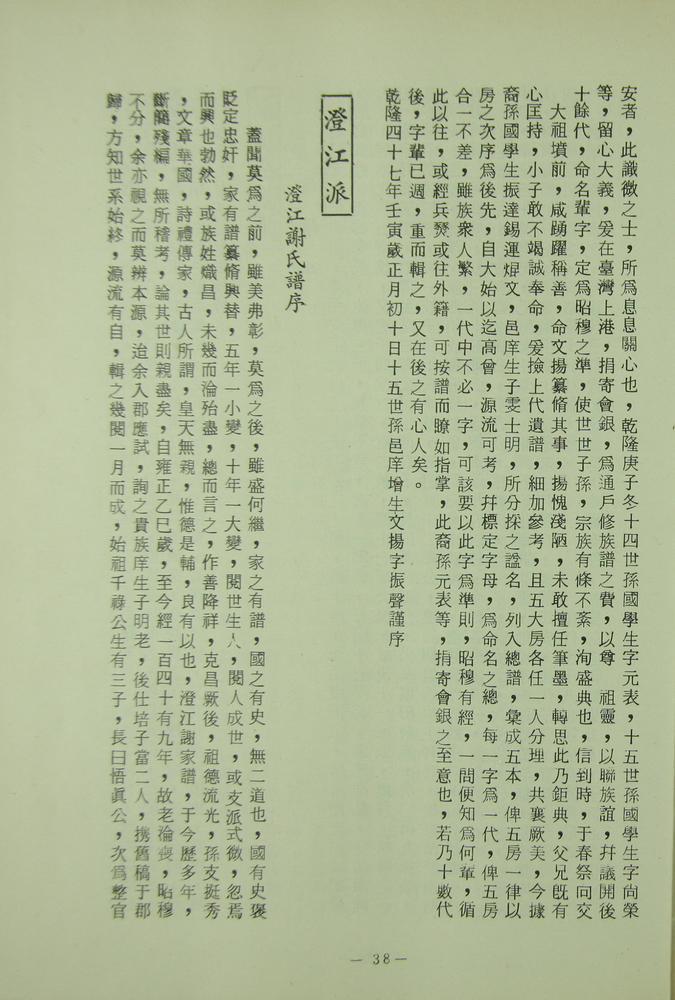 安者，此識微之士，所爲息息關心也，乾隆庚子冬十四世孫國學生字元表，十五世孫國學生字尚榮
等，留心大義，爰在臺灣上港，捐寄會銀，爲通戶修族譜之費，以尊　祖靈，以聯族誼，幷議開後
十餘代，命名輩字，定爲昭穆之準，使世世子孫，宗族有條不紊，洵盛典也，信到時，于春祭同交
大祖墳前，咸踴躍稱善，命文揚纂脩其事，揚愧淺陋，未敢擅任筆墨，轉思此乃鉅典，父兄旣有
心匡持，小子敢不竭誠奉命，爰撿上代遺譜，細加參考，且五大房各任一人分理，共襄厥美，今據
裔孫國學生振達錫運焜文，邑庠生子雯士明，所分採之諡名，列入總譜，彙成五本，俾五房一律以
房之次序爲後先，自大始以迄高曾，源流可考，幷標定字母，爲命名之總，每一字爲一代，俾五房
合一不差，雖族衆人繁，一代中不必一字，可該要以此字爲準則，昭穆有經，一問便知爲何輩，循
此以往，或經兵燹或往外籍，可按譜而瞭如指掌，此裔孫元表等，捐寄會銀之至意也，若乃十數代
後，字輩已週，重而輯之，又在後之有心人矣。
乾隆四十七年壬寅歲正月初十日十五世孫邑庠增生文揚字振聲謹序
澄江派
澄江謝氏譜序
蓋聞莫爲之前，雖美弗彰，莫爲之後，雖盛何繼，家之有譜，國之有史，無二道也，國有史褒
貶定忠奸，家有譜纂脩興替，五年一小變，十年一大變，閱世生人，閱人成世，或支派式微，忽焉
而興也勃然，或族姓熾昌，未幾而淪殆盡，總而言之，作善降祥，克昌厥後，祖德流光，孫支挺秀
，文章華國，詩禮傳家，古人所謂，皇天無親，惟德是輔，良有以也，澄江謝家譜，于今歷多年，
斷簡殘編，無所稽考，論其世則親盡矣，自雍正乙巳歲，至今經一百四十有九年，故老淪喪，昭穆
不分，余亦視之而莫辨本源，迨余入郡應試，詢之貴族庠生子明老，後仕培子當二人，携舊稿于郡
歸，方知世系始終，源流有自，輯之幾閱一月而成，始祖千祿公生有三子，長曰悟眞公，次爲整官
— 38 —